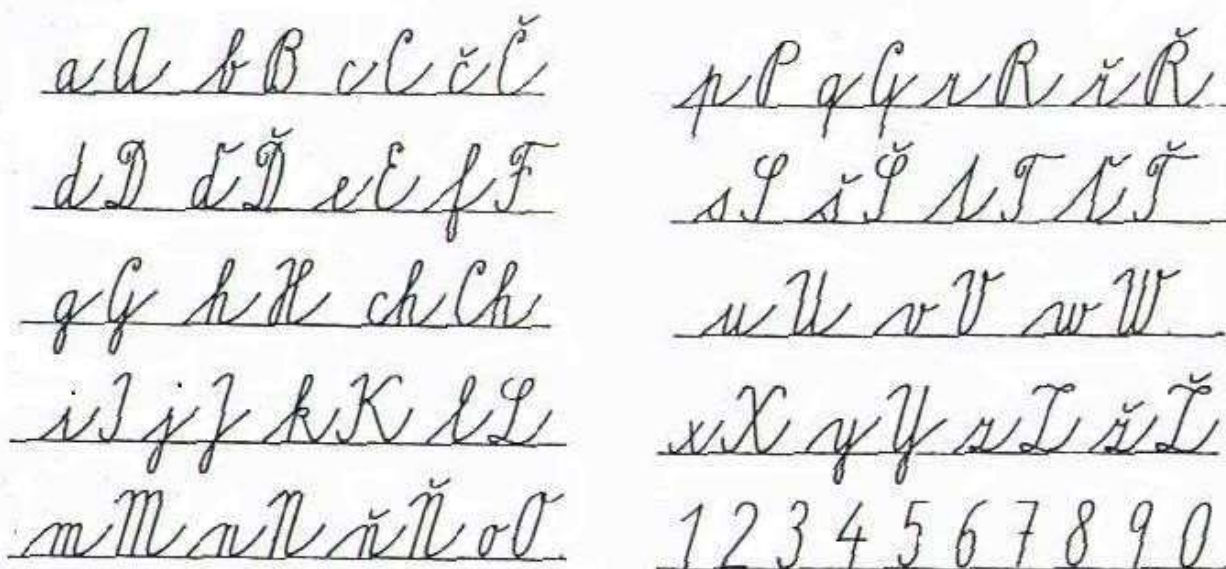 a A b B c C č Č
d D ď Ď e E f F
g G h H ch Ch
i I j J k K l L
m M n N ň Ň o O
p P q Q r R ř Ř
s S š Š t T ť Ť
u U v V w W
x X y Y z Z ž Ž
1 2 3 4 5 6 7 8 9 0